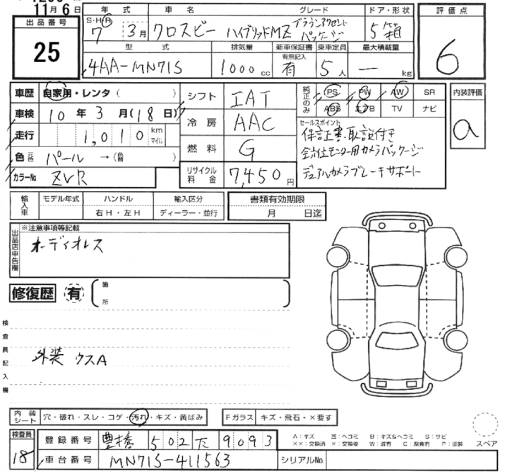 11月6日
出品番号
25
S・H・R
年式
7年3月
車名
クロスビー
グレード
ハイブリッドMZ
ドア・形状
5
評価点
6
型式
4AA-MN71S
排気量
1000cc
新車保証書
有無記入
有
乗車定員
5人
最大積載量
kg
車歴
自家用・レンタ
車検
10年3月(18日)
走行
1,010
km
マイル
色
パール→
カラーNo
ZVR
シフト
IAT
冷房
AAC
燃料
G
リサイクル料金
7,450円
純正のみ
PS
PW
AW
SR
ABS
エアB
TV
ナビ
セールスポイント
保証書、取説付き
全方位モニター用カメラパッケージ
デュアルカメラブレーキサポート
内装評価
a
輸入車
モデル年式
ハンドル
右H・左H
輸入区分
ディーラー・並行
書類有効期限
月 日迄
出品店申告欄
※注意事項等記載
オーディオレス
修復歴
有
箇所
検査員記入欄
外装 ウスA
内装シート
穴・破れ・スレ・コゲ・汚れ・キズ・黄ばみ
Fガラス
キズ・飛石・×要す
スペア
検査員
18
登録番号
豊橋 502 て 9093
車台番号
MN71S-411563
シリアルNo.